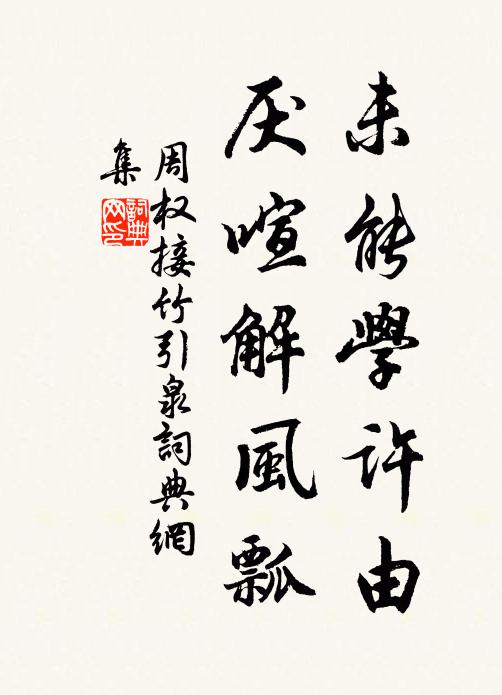 未能學许由
厌喧解風瓢
周权接竹引泉詞典網
集
詞典
网印